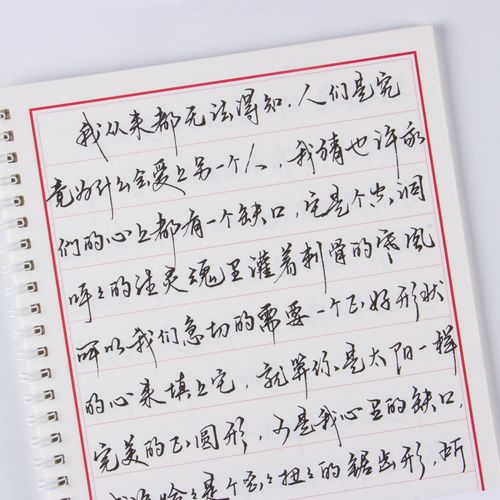 我从来都无法得知,人们是究
竟为什么会爱上另一个人,我猜也许我
们的心上都有一个缺口,它是个空洞
呼呼的往灵魂里灌着刺骨的寒风
所以我们急切的需要一个正好形状
的心来填上它,就算你是太阳一样
完美的正圆形,可是我心里的缺口,
或许恰恰是个歪歪扭扭的锯齿形,所